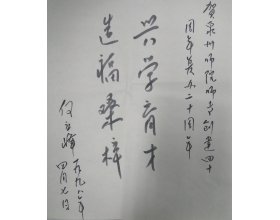 贺泉州师院师专创建四十
周年复办二十周年
兴学育才
造福桑梓
何立峰
一九九八年
四月七日